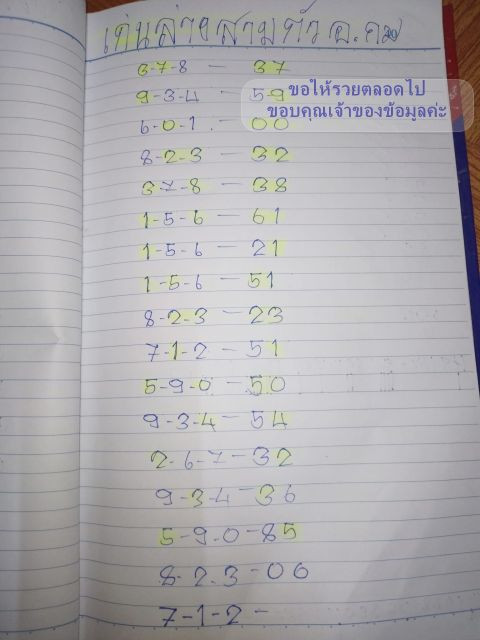 เด่นล่างสามตัว อ.คม
3-7-8 - 37
9-3-4 - 59
ขอให้รวยตลอดไป
ขอบคุณเจ้าของข้อมูลค่ะ
6-0-1 - 00
8-2-3 - 32
3-7-8 - 38
1-5-6 - 61
1-5-6 - 21
1-5-6 - 51
8-2-3 - 23
7-1-2 - 51
5-9-0 - 50
9-3-4 - 54
2-6-7 - 32
9-3-4 - 36
5-9-0 - 85
8-2-3 - 06
7-1-2 -